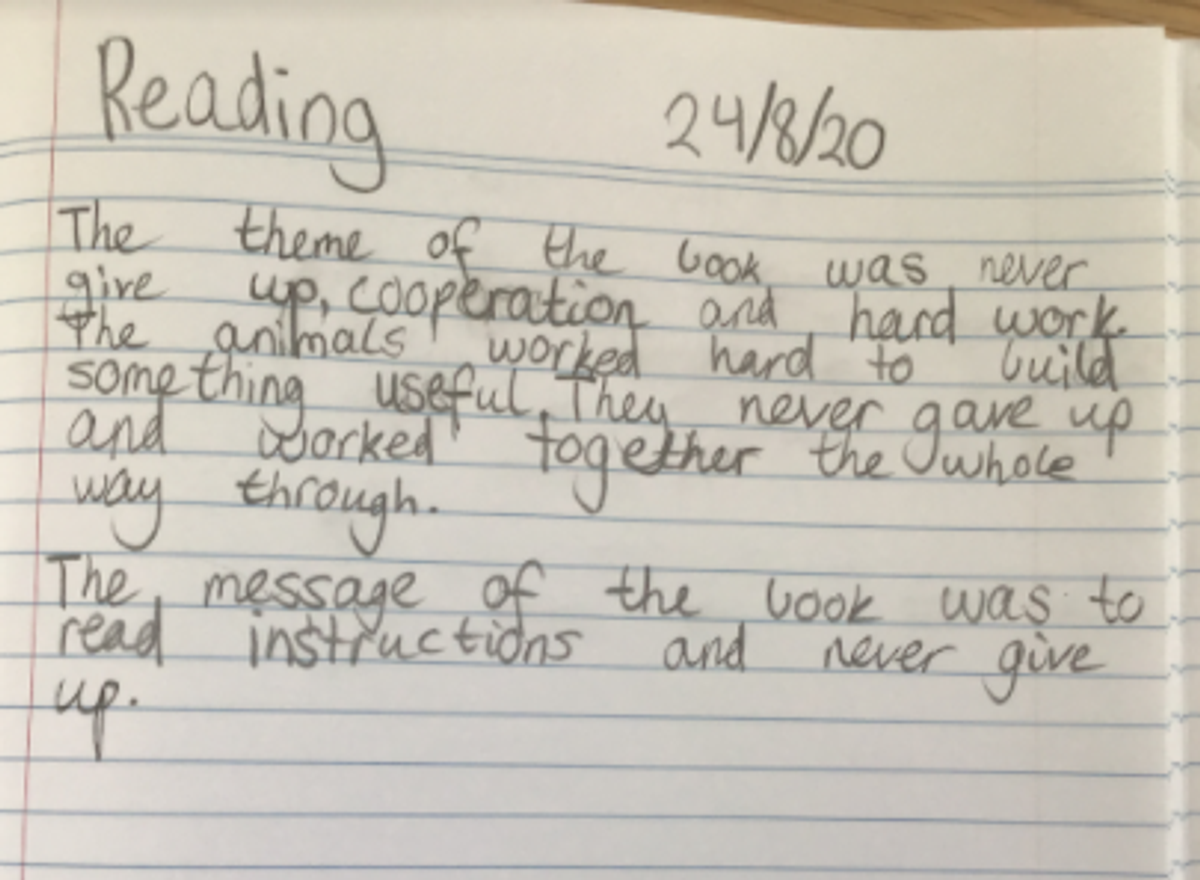 Reading 24/8/20
The theme of the book was never
give up, cooperation and hard work.
The animals worked hard to build
something useful. They never gave up
and worked together the whole
way through.
The message of the book was to
read instructions and never give
up.